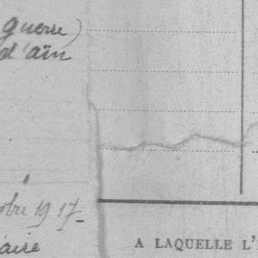 guerre)
d'ain
obre 1917-
aire
A LAQUELLE L'